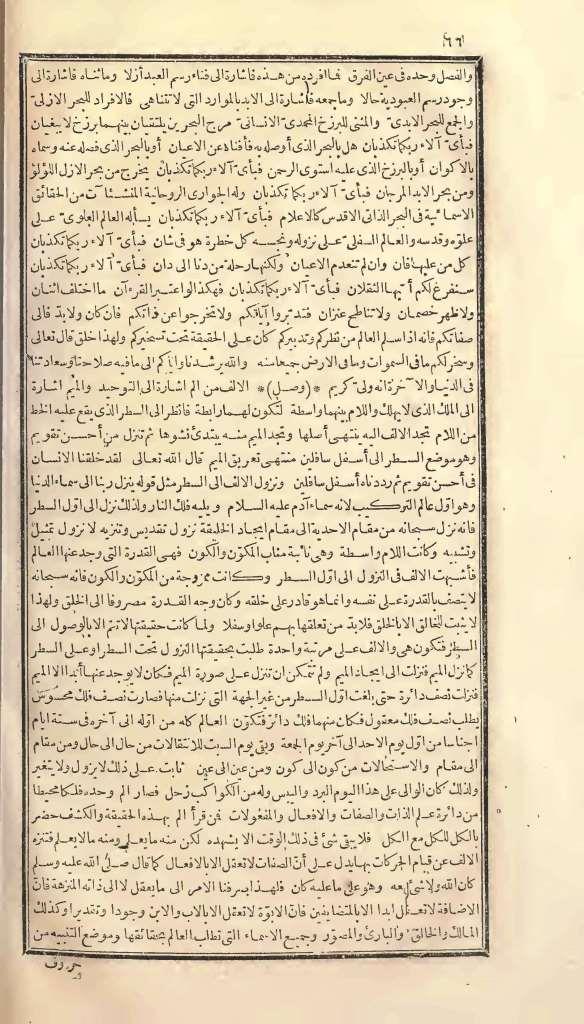 ٦٦
والفصل وحده فى عين الفرق فما أفرده من هذه فاشارة الى فناء رسم العبد أزلا وما ثناه فاشارة الى
وجود رسم العبودية حالا وما جمعه فاشارة الى الابد بالموارد التى لا تتناهى فالافراد للبحر الازلى
والجمع للبحر الابدى والمثنى للبرزخ المحمدى الانسانى مرج البحرين يلتقيان بينهما برزخ لا يبغيان
فبأى آلاء ربكما تكذبان هل بالبحر الذى أوصله به فأفناه عن الاعيان أو بالبحر الذى فصله عنه وسماه
بالاكوان أو بالبرزخ الذى عليه استوى الرحمن فبأى آلاء ربكما تكذبان يخرج من بحر الازل اللؤلؤ
ومن بحر الابد المرجان فبأى آلاء ربكما تكذبان وله الجوارى الروحانية المنشئات من الحقائق
الاسمائية فى البحر الذاتى الاقدس كالاعلام فبأى آلاء ربكما تكذبان يسأله العالم العلوى على
علوه وقدسه والعالم السفلى على نزوله ونحسه كل خطرة هو فى شان فبأى آلاء ربكما تكذبان
كل من عليها فان وان لم تنعدم الاعيان ولكنها رحلة من دنا الى دان فبأى آلاء ربكما تكذبان
سنفرغ لكم أيها الثقلان فبأى آلاء ربكما تكذبان فهكذا لو اعتبر القرءآن ما اختلف اثنان
ولا ظهر خصمان ولا تناطح عنزان فتدبروا آياتكم ولا تخرجوا عن ذاتكم فان كان ولا بد فالى
صفاتكم فانه اذا سلم العالم من نظركم وتدبيركم كان على الحقيقة تحت تسخيركم ولهذا خلق قال تعالى
وسخر لكم ما فى السموات وما فى الارض جميعا منه والله يرشدنا واياكم الى ما فيه صلاحنا وسعادتنا
فى الدنيا والآخرة انه ولى كريم *(وصل)* الالف من الم اشارة الى التوحيد والميم اشارة
الى الملك الذى لا يهلك واللام بينهما واسطة لتكون لهما رابطة فانظر الى السطر الذى يقع عليه الخط
من اللام تجد الالف اليه ينتهى أصلها وتجد الميم منه يبتدئ نشوها ثم تنزل من أحسن تقويم
وهو موضع السطر الى أسفل سافلين منتهى تعريق الميم قال الله تعالى لقد خلقنا الانسان
فى أحسن تقويم ثم رددناه أسفل سافلين ونزول الالف الى السطر مثل قوله ينزل ربنا الى سماء الدنيا
وهو أول عالم التركيب لانه سماء آدم عليه السلام ويليه فلك النار ولذلك نزل الى اول السطر
فانه نزل سبحانه من مقام الاحدية الى مقام ايجاد الخليقة نزول تقديس وتنزيه لا نزول تمثيل
وتشبيه وكانت اللام واسطة وهى نائبة مناب المكون والكون فهى القدرة التى وجد عنها العالم
فأشبهت الالف فى النزول الى اول السطر وكانت ممزوجة من المكون والكون فانه سبحانه
لا يتصف بالقدرة على نفسه وانما هو قادر على خلقه وكان وجه القدرة مصروفا الى الخلق ولهذا
لا يثبت للخالق الا بالخلق فلا بد من تعلقها بهم علوا وسفلا ولما كانت حقيقتها لا تتم الا بالوصول الى
السطر فتكون هى والالف على مرتبة واحدة طلبت بحقيقتها النزول تحت السطر او على السطر
كما نزل الميم فنزلت الى ايجاد الميم ولم تتمكن ان تنزل على صورة الميم فكان لا يوجد عنها أبدا الا الميم
فنزلت نصف دائرة حتى بلغت اول السطر من غير الجهة التى نزلت منها فصارت نصف فلك محسوس
يطلب نصف فلك معقول فكان منهما فلك دائر فتكون العالم كله من اوله الى آخره فى ستة ايام
اجناسا من اول يوم الاحد الى آخر يوم الجمعة وبقى يوم السبت للانتقالات من حال الى حال ومن مقام
الى مقام والاستحالات من كون الى كون ومن عين الى عين ثابت على ذلك لا يزول ولا يتغير
ولذلك كان الوالى على هذا اليوم البرد واليبس وله من الكواكب زحل فصار الم وحده فلكا محيطا
من دائرة علم الذات والصفات والافعال والمفعولات فمن قرأ الم بهذه الحقيقة والكشف حضر
بالكل للكل مع الكل فلا يبقى شئ فى ذلك الوقت الا يشهده لكن منه ما يعلم ومنه ما لا يعلم فتنزه
الالف عن قيام الحركات بها يدل على أن الصفات لا تعقل الا بالافعال كما قال صلى الله عليه وسلم
كان الله ولا شئ معه وهو على ما عليه كان فلهذا يصرفنا الامر الى ما يعقل لا الى ذاته المنزهة فان
الاضافة لا تعقل ابدا الا بالمتضايفين فان الابوة لا تعقل الا بالاب والابن وجودا وتقديرا وكذلك
المالك والخالق والبارئ والمصور وجميع الاسماء التى تطلب العالم بحقائقها وموضع التنبيه من
حروف